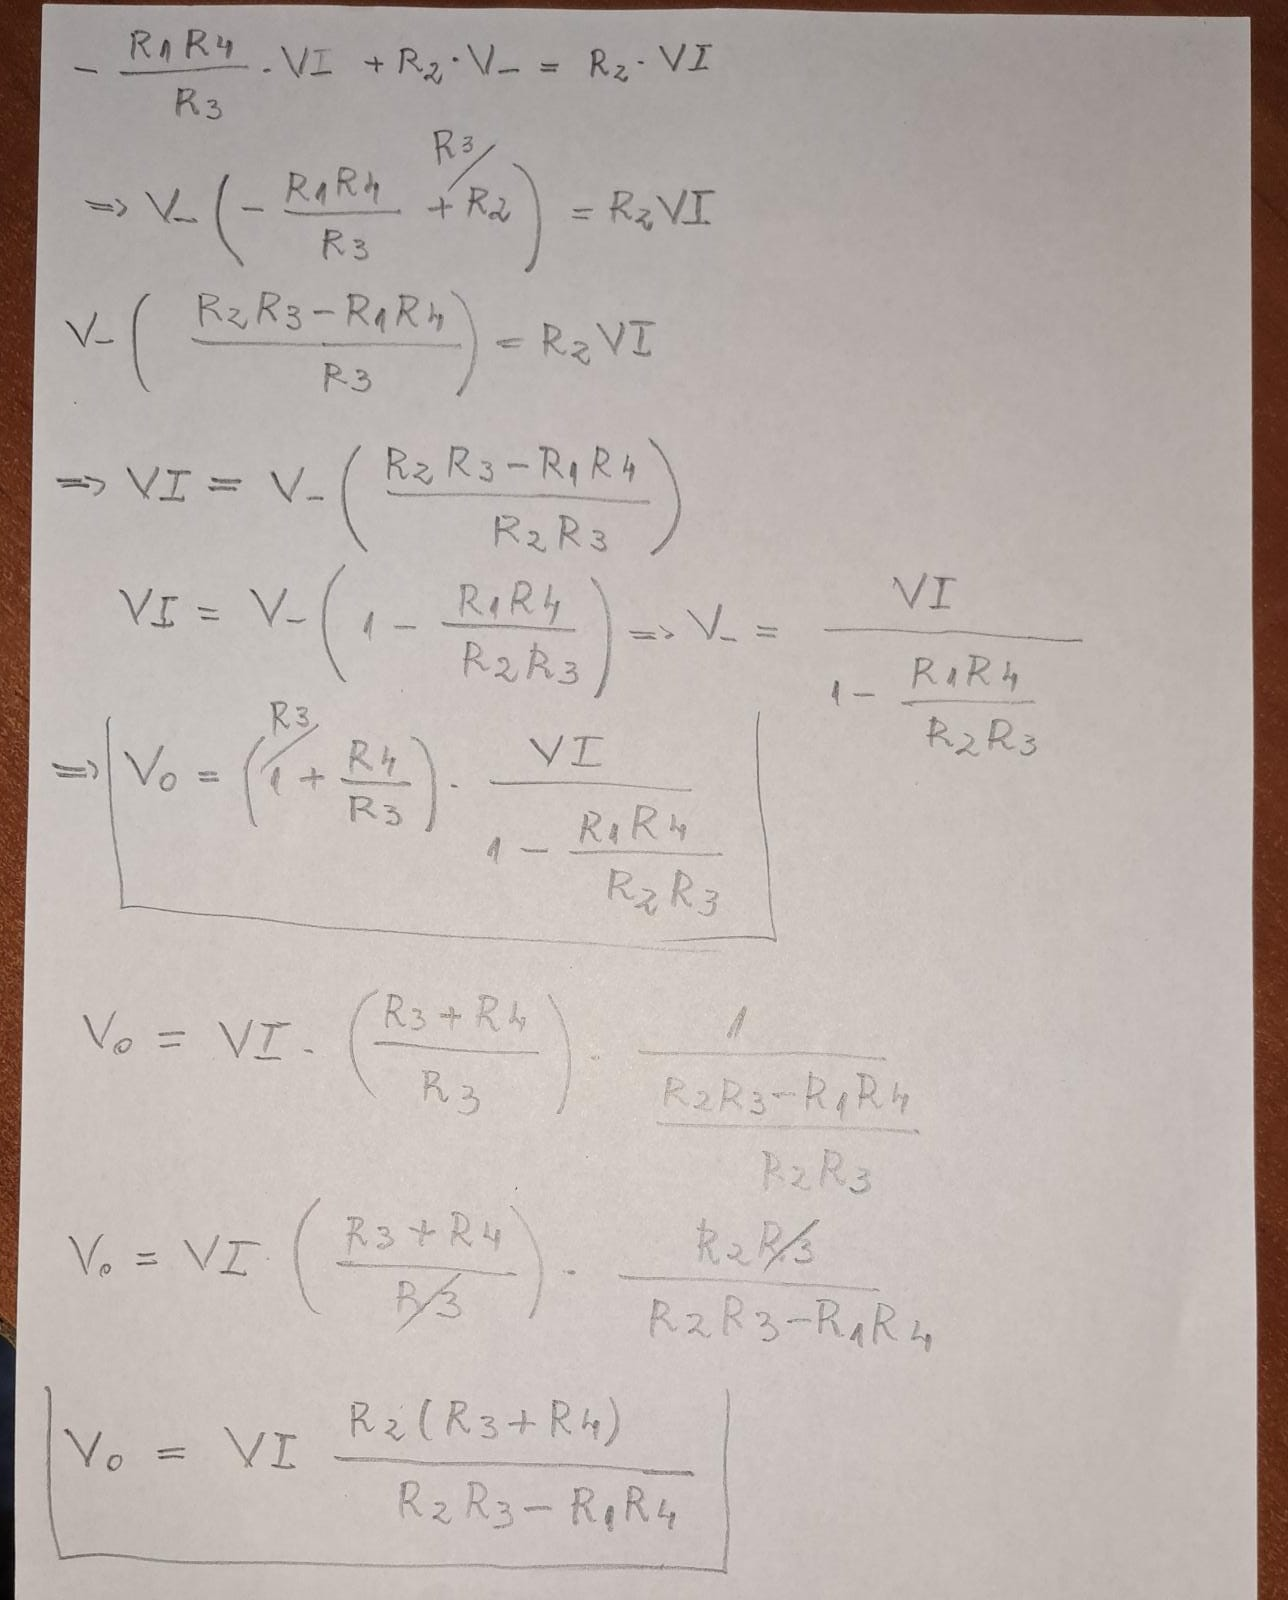 - R1R4/R3 · VI + R2 · V- = R2 · VI
=> V- ( - R1R4/R3 + R2 ) = R2VI
R3
V- ( (R2R3 - R1R4)/R3 ) = R2VI
=> VI = V- ( (R2R3 - R1R4)/(R2R3) )
VI = V- ( 1 - R1R4/(R2R3) ) => V- = VI/(1 - R1R4/(R2R3))
=> V0 = ( 1 + R4/R3 ) · VI/(1 - R1R4/(R2R3))
R3
V0 = VI · ( (R3+R4)/R3 ) · 1/((R2R3-R1R4)/(R2R3))
V0 = VI · ( (R3+R4)/R3 ) · R2R3/(R2R3-R1R4)
V0 = VI R2(R3+R4)/(R2R3 - R1R4)